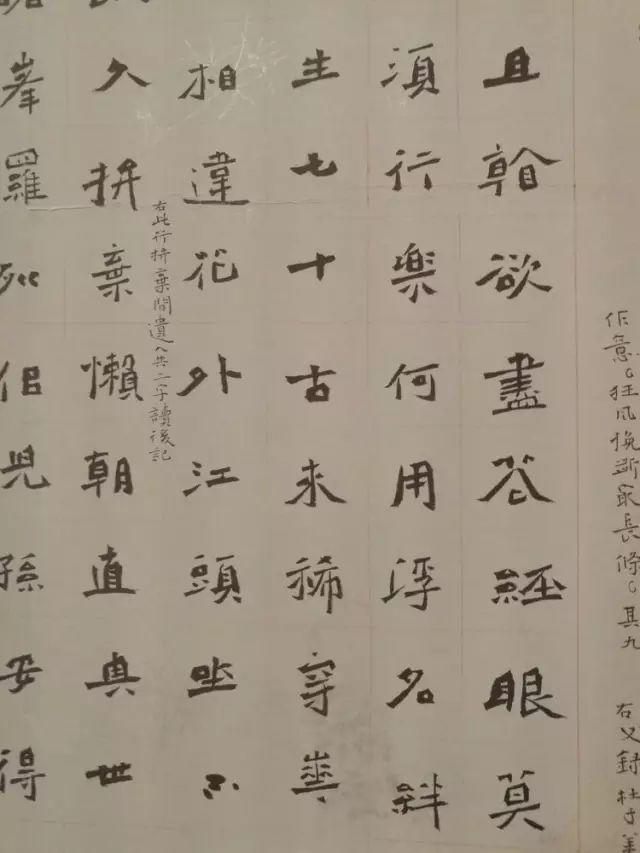 作意。狂风挽斷最長條。其九 右又録杜子美
且看欲盡花經眼莫
須行樂何用浮名絆
生七十古来稀穿華
相違花外江頭坐不
右此行拚棄間遺人共二字讀後記
久拚棄懶朝直與世
峯羅列侣兒孫安得